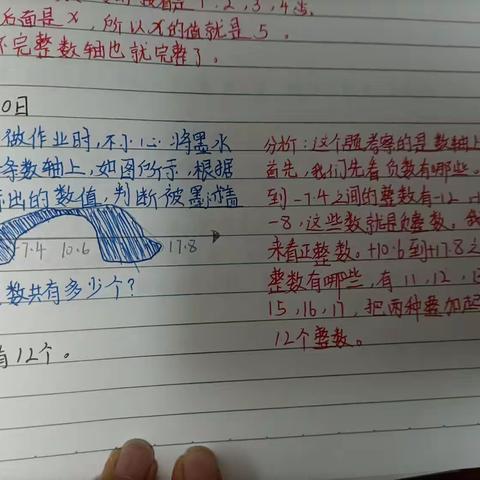 后面是x，所以x的值就是5。
不完整数轴也就完整了。
0日
做作业时，不小心将墨水
条数轴上，如图所示，根据
出的数值，判断被墨
-7.4 10.6 17.8
数共有多少个？
有12个。
分析：这个题考察的是数轴上
首先，我们先看负数有哪些。
到-7.4之间的整数有-12，
-8，这些数就是负整数。
来看正整数。+10.6到+17.8之
整数有哪些，有11，12，
15，16，17，把两种叠加起
12个整数。